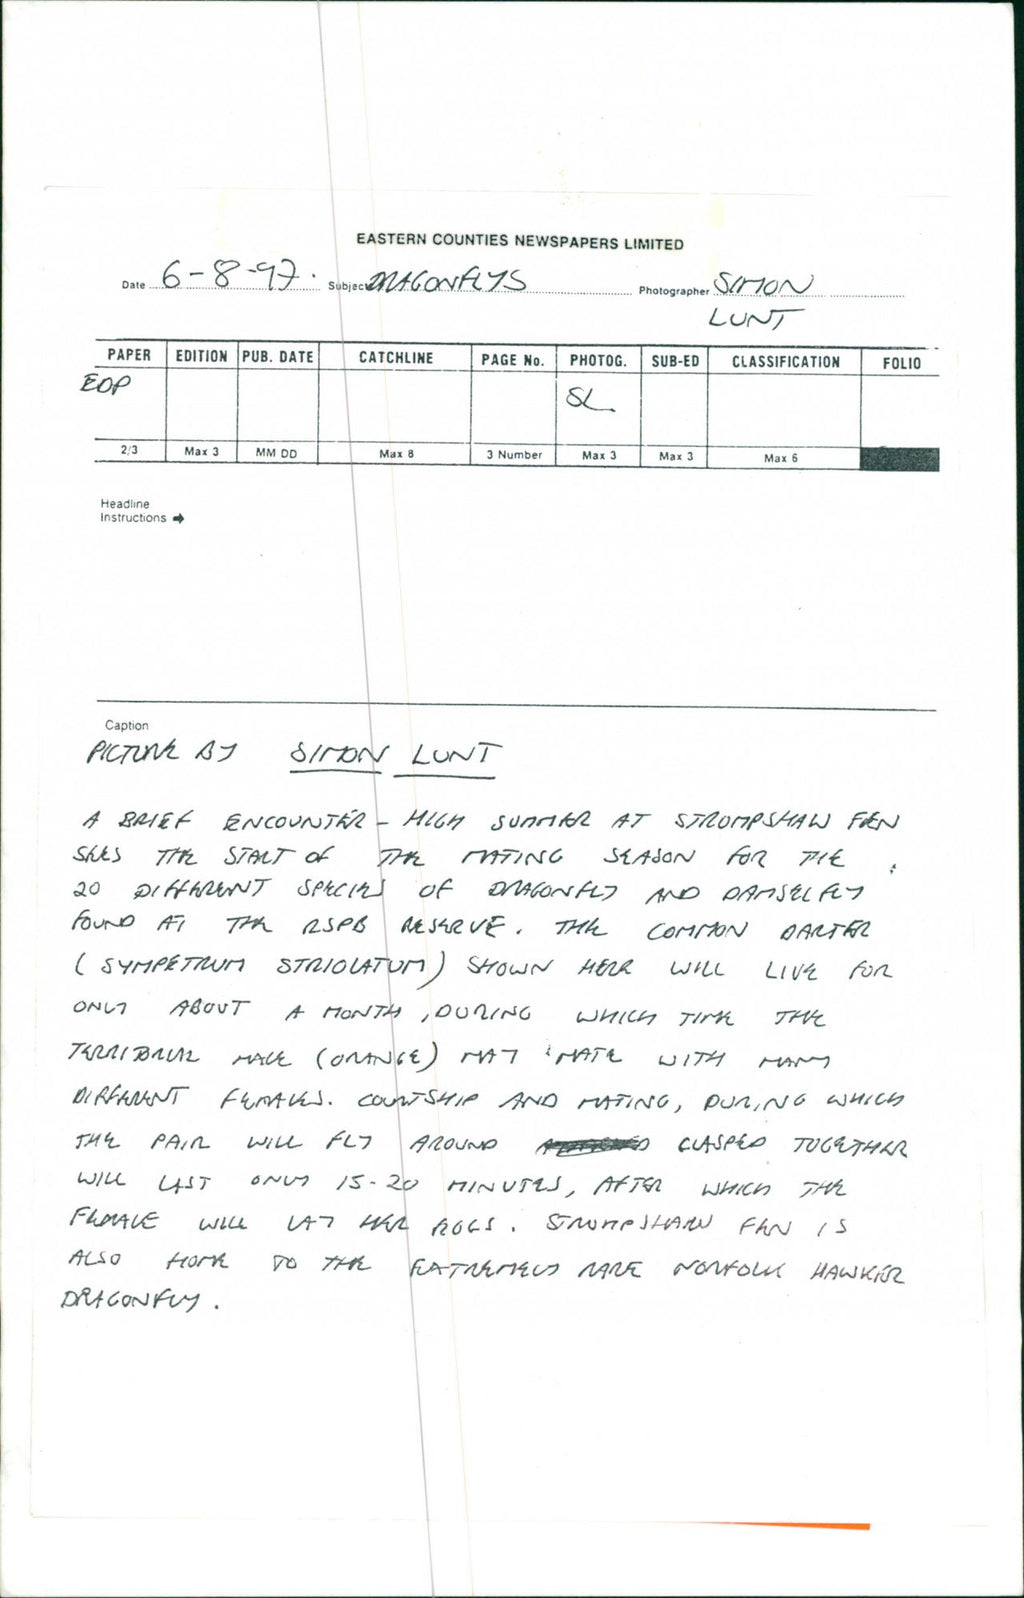 EASTERN COUNTIES NEWSPAPERS LIMITED
Date 6-8-97. Subject DRAGONFLYS Photographer SIMON
LUNT
PAPER EDITION PUB. DATE CATCHLINE PAGE No. PHOTOG. SUB-ED CLASSIFICATION FOLIO
EDP SL
2/3 Max 3 MM DD Max 8 3 Number Max 3 Max 3 Max 6
Headline
Instructions ➔
Caption
PICTURE BY SIMON LUNT
A BRIEF ENCOUNTER - HIGH SUMMER AT STROMPSHAW FEN
SEES THE START OF THE MATING SEASON FOR THE
20 DIFFERENT SPECIES OF DRAGONFLY AND DAMSELFLY
FOUND AT THE RSPB RESERVE. THE COMMON DARTER
(SYMPETRUM STRIOLATUM) SHOWN HERE WILL LIVE FOR
ONLY ABOUT A MONTH, DURING WHICH TIME THE
TERRITORIAL MALE (ORANGE) MAY MATE WITH MANY
DIFFERENT FEMALES. COURTSHIP AND MATING, DURING WHICH
THE PAIR WILL FLY AROUND CLASPED TOGETHER
WILL LAST ONLY 15-20 MINUTES, AFTER WHICH THE
FEMALE WILL LAY HER EGGS. STRUMPSHAW FEN IS
ALSO HOME TO THE EXTREMELY RARE NORFOLK HAWKER
DRAGONFLY.